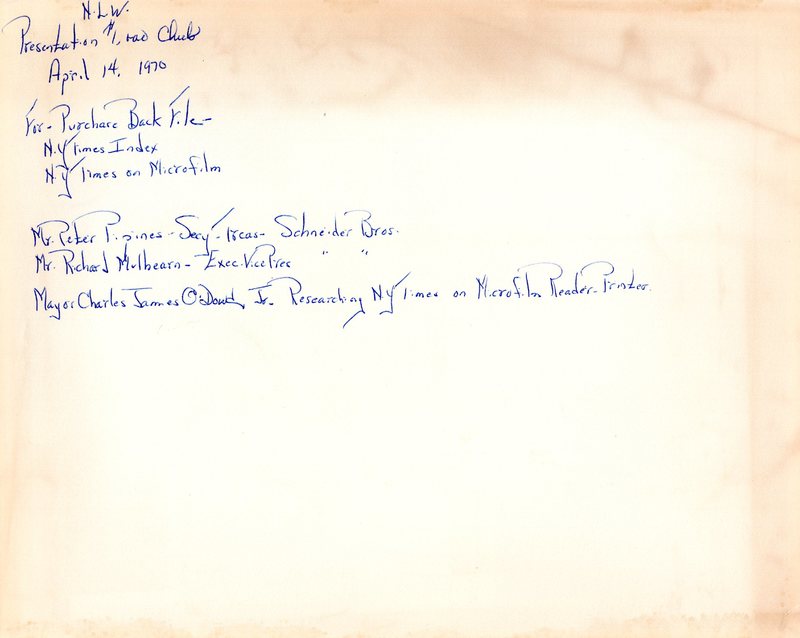 N.L.W.
Presentation $1,000 Check
April 14, 1970
For - Purchase Back File -
N.Y Times Index
N.Y Times on Microfilm
Mr. Peter Pipines - Secy - Treas - Schneider Bros.
Mr. Richard Mulhearn - Exec. Vice Pres " "
Mayor Charles James O'Dowd Jr. Researching N.Y Times on Microfilm Reader-Printer.